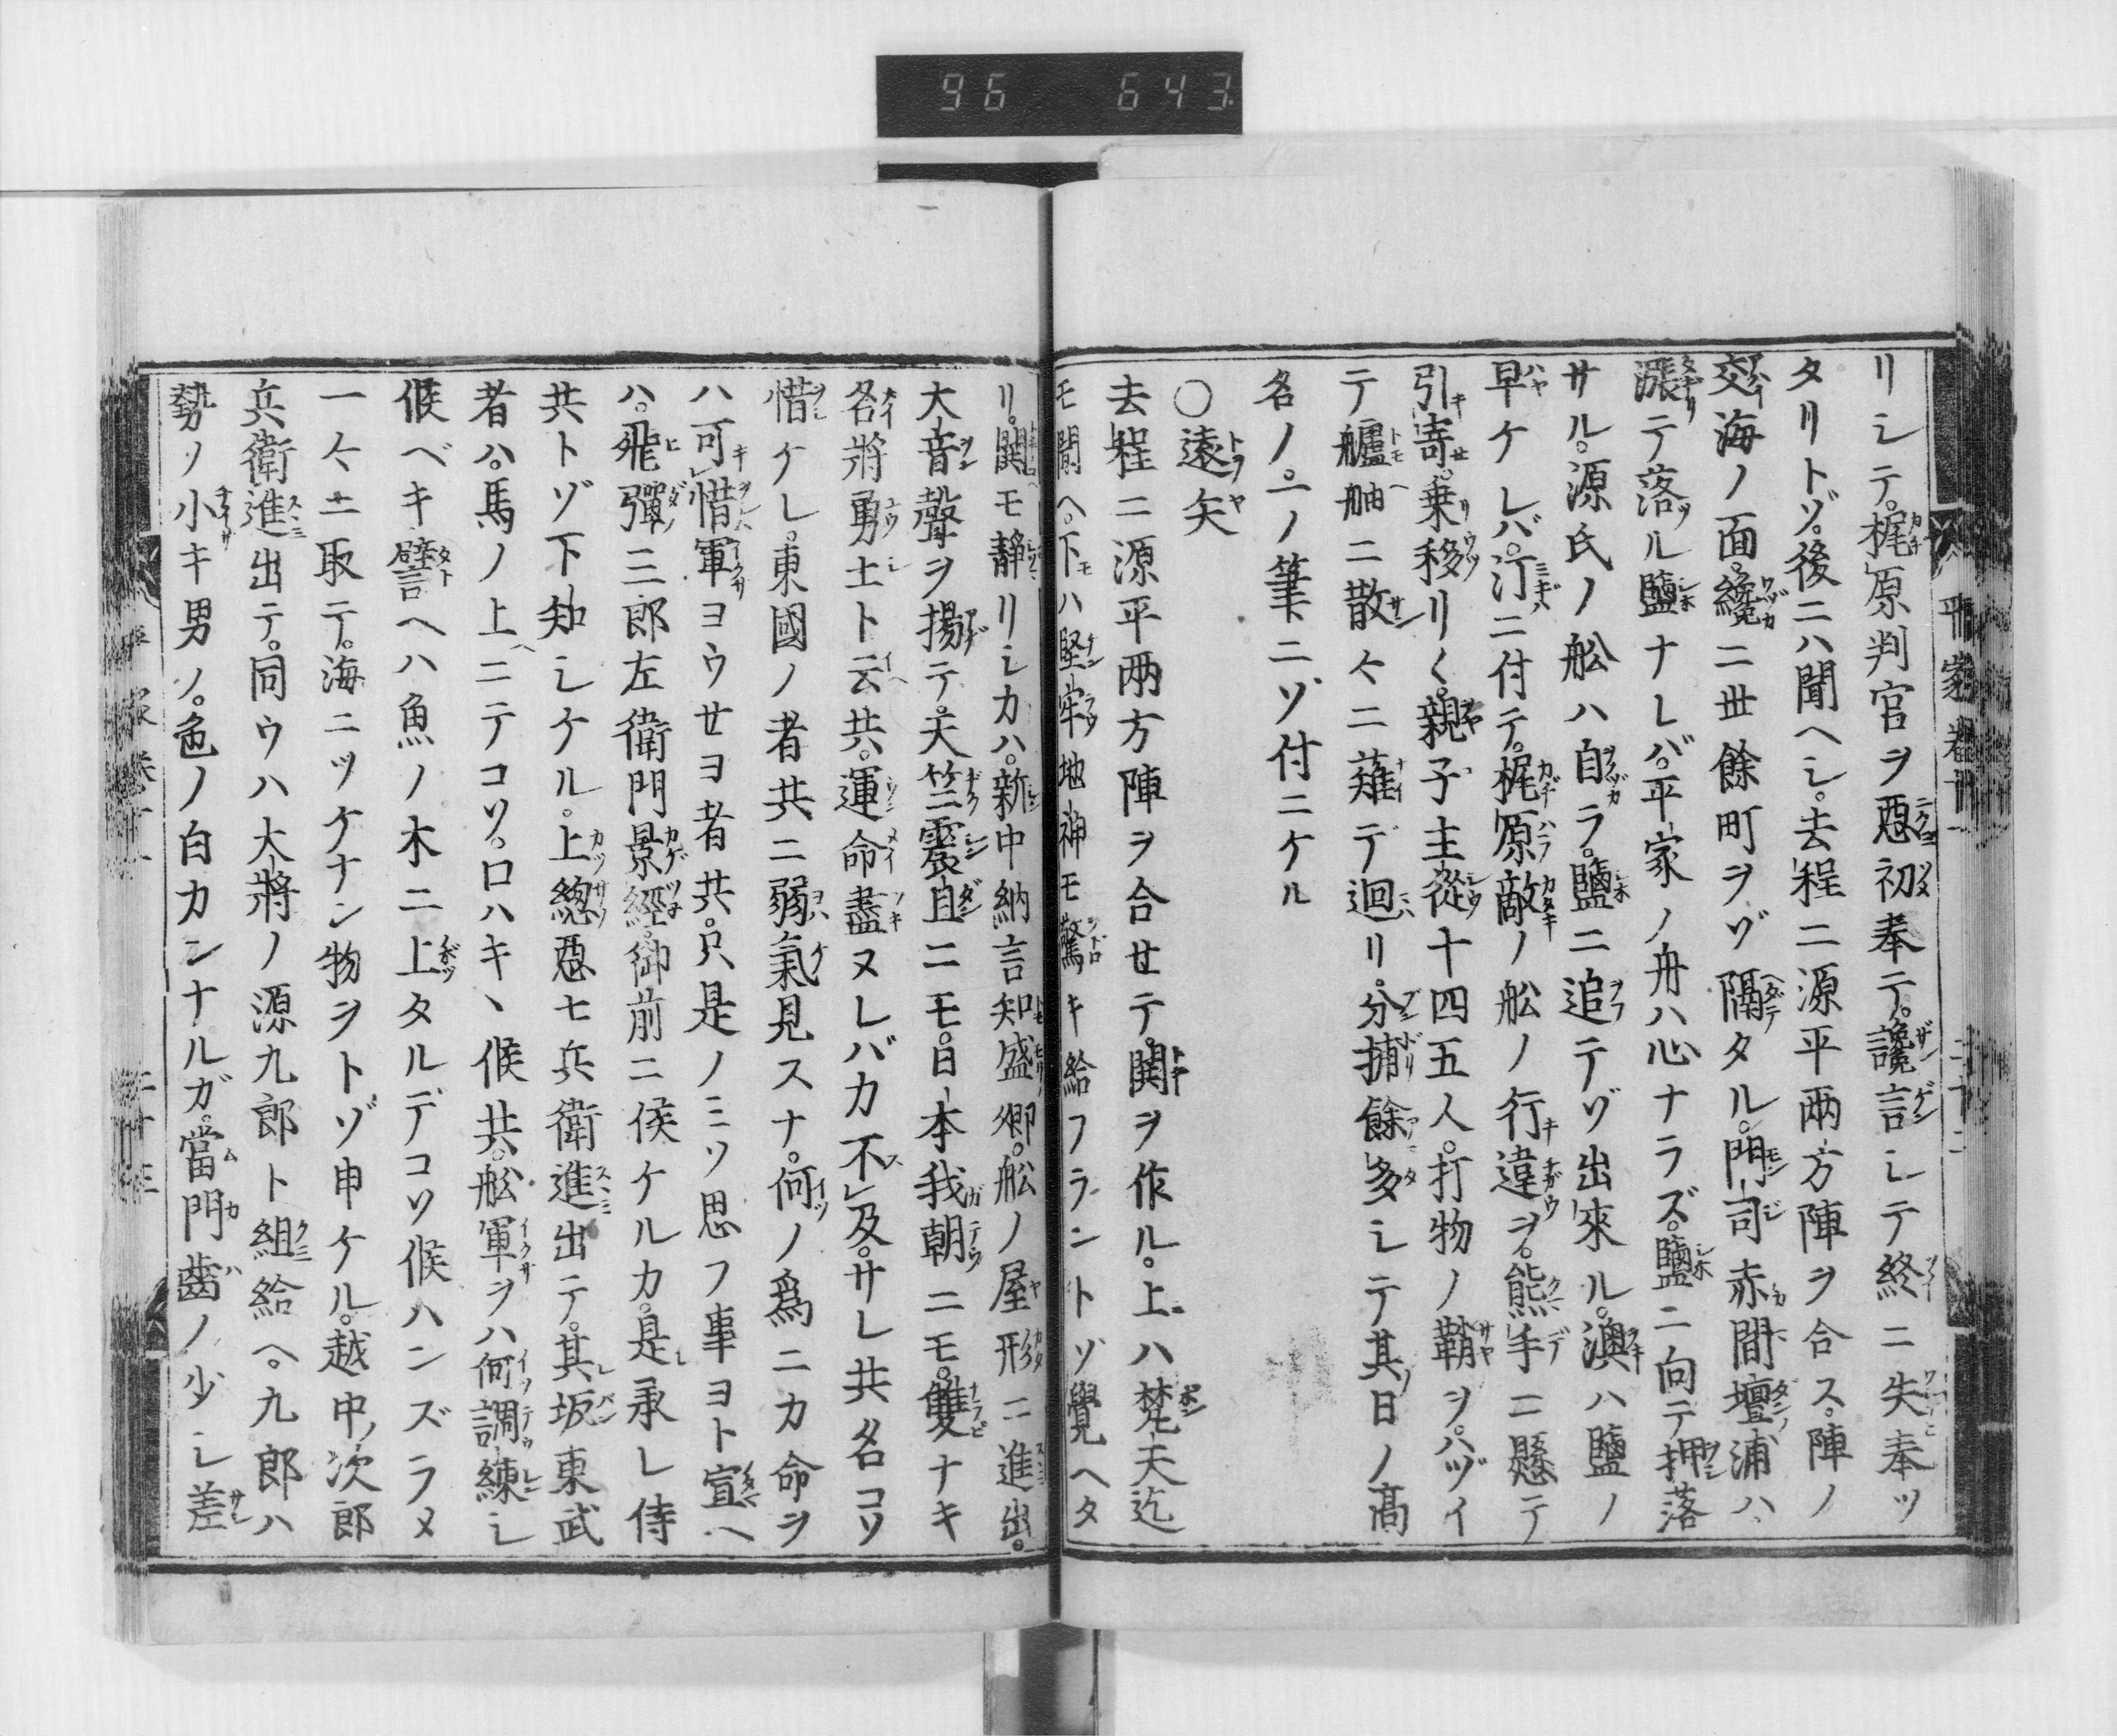 96 643
リシテ。梶原判官ヲ惡初奉テ。讒言シテ終ニ失奉ツ
タリトゾ。後ニハ聞ヘシ。去程ニ源平兩方陣ヲ合ス。陣ノ
交海ノ面。纔ニ丗餘町ヲゾ隔タル。門司赤間壇浦ハ
漲テ落ル鹽ナレバ。平家ノ舟ハ心ナラズ。鹽ニ向テ押落
サル。源氏ノ舩ハ自ラ。鹽ニ追テゾ出來ル。澳ハ鹽ノ
早ケレバ。汀ニ付テ。梶原敵ノ舩ノ行違ヲ。熊手ニ懸テ
引寄。乗移リ〱。親子主從十四五人。打物ノ鞘ヲ。ハヅイ
テ艫舳ニ散々ニ薙デ迴リ。分捕餘多シテ其日ノ高
名ノ。一ノ筆ニソ付ニケル
○遠矢
去程ニ源平兩方陣ヲ合セテ。鬨ヲ作ル。上ハ梵天迄
モ聞ヘ。下ハ堅牢地神モ驚キ給フラントゾ覺ヘタ
リ。鬨モ靜リシカハ。新中納言知盛卿。舩ノ屋形ニ進出。
大音聲ヲ揚テ。天竺震旦ニモ。日本我朝ニモ。雙ナキ
名將勇士ト云共。運命盡ヌレバカ不及。サレ共名コソ
惜ケレ。東國ノ者共ニ弱氣見スナ。何ノ爲ニカ命ヲ
ハ可惜軍ヨウセヨ者共。只是ノミソ思フ事ヨト宣ヘ
ハ。飛彈三郎左衛門景經。御前ニ侯ケルカ。是承レ侍
共トゾ下知シケル。上總惡七兵衛進出テ。其坂東武
者ハ。馬ノ上ニテコソ。口ハキヽ候共。舩軍ヲハ何調練シ
候ベキ譬ヘハ魚ノ木ニ上タルデコソ候ハンズラメ
一々ニ取テ。海ニツケナン物ヲトゾ申ケル。越中次郎
兵衛進出テ。同ウハ大將ノ源九郎ト組給ヘ。九郎ハ
勢ノ小キ男ノ。色ノ白カンナルガ。當門齒ノ少シ差